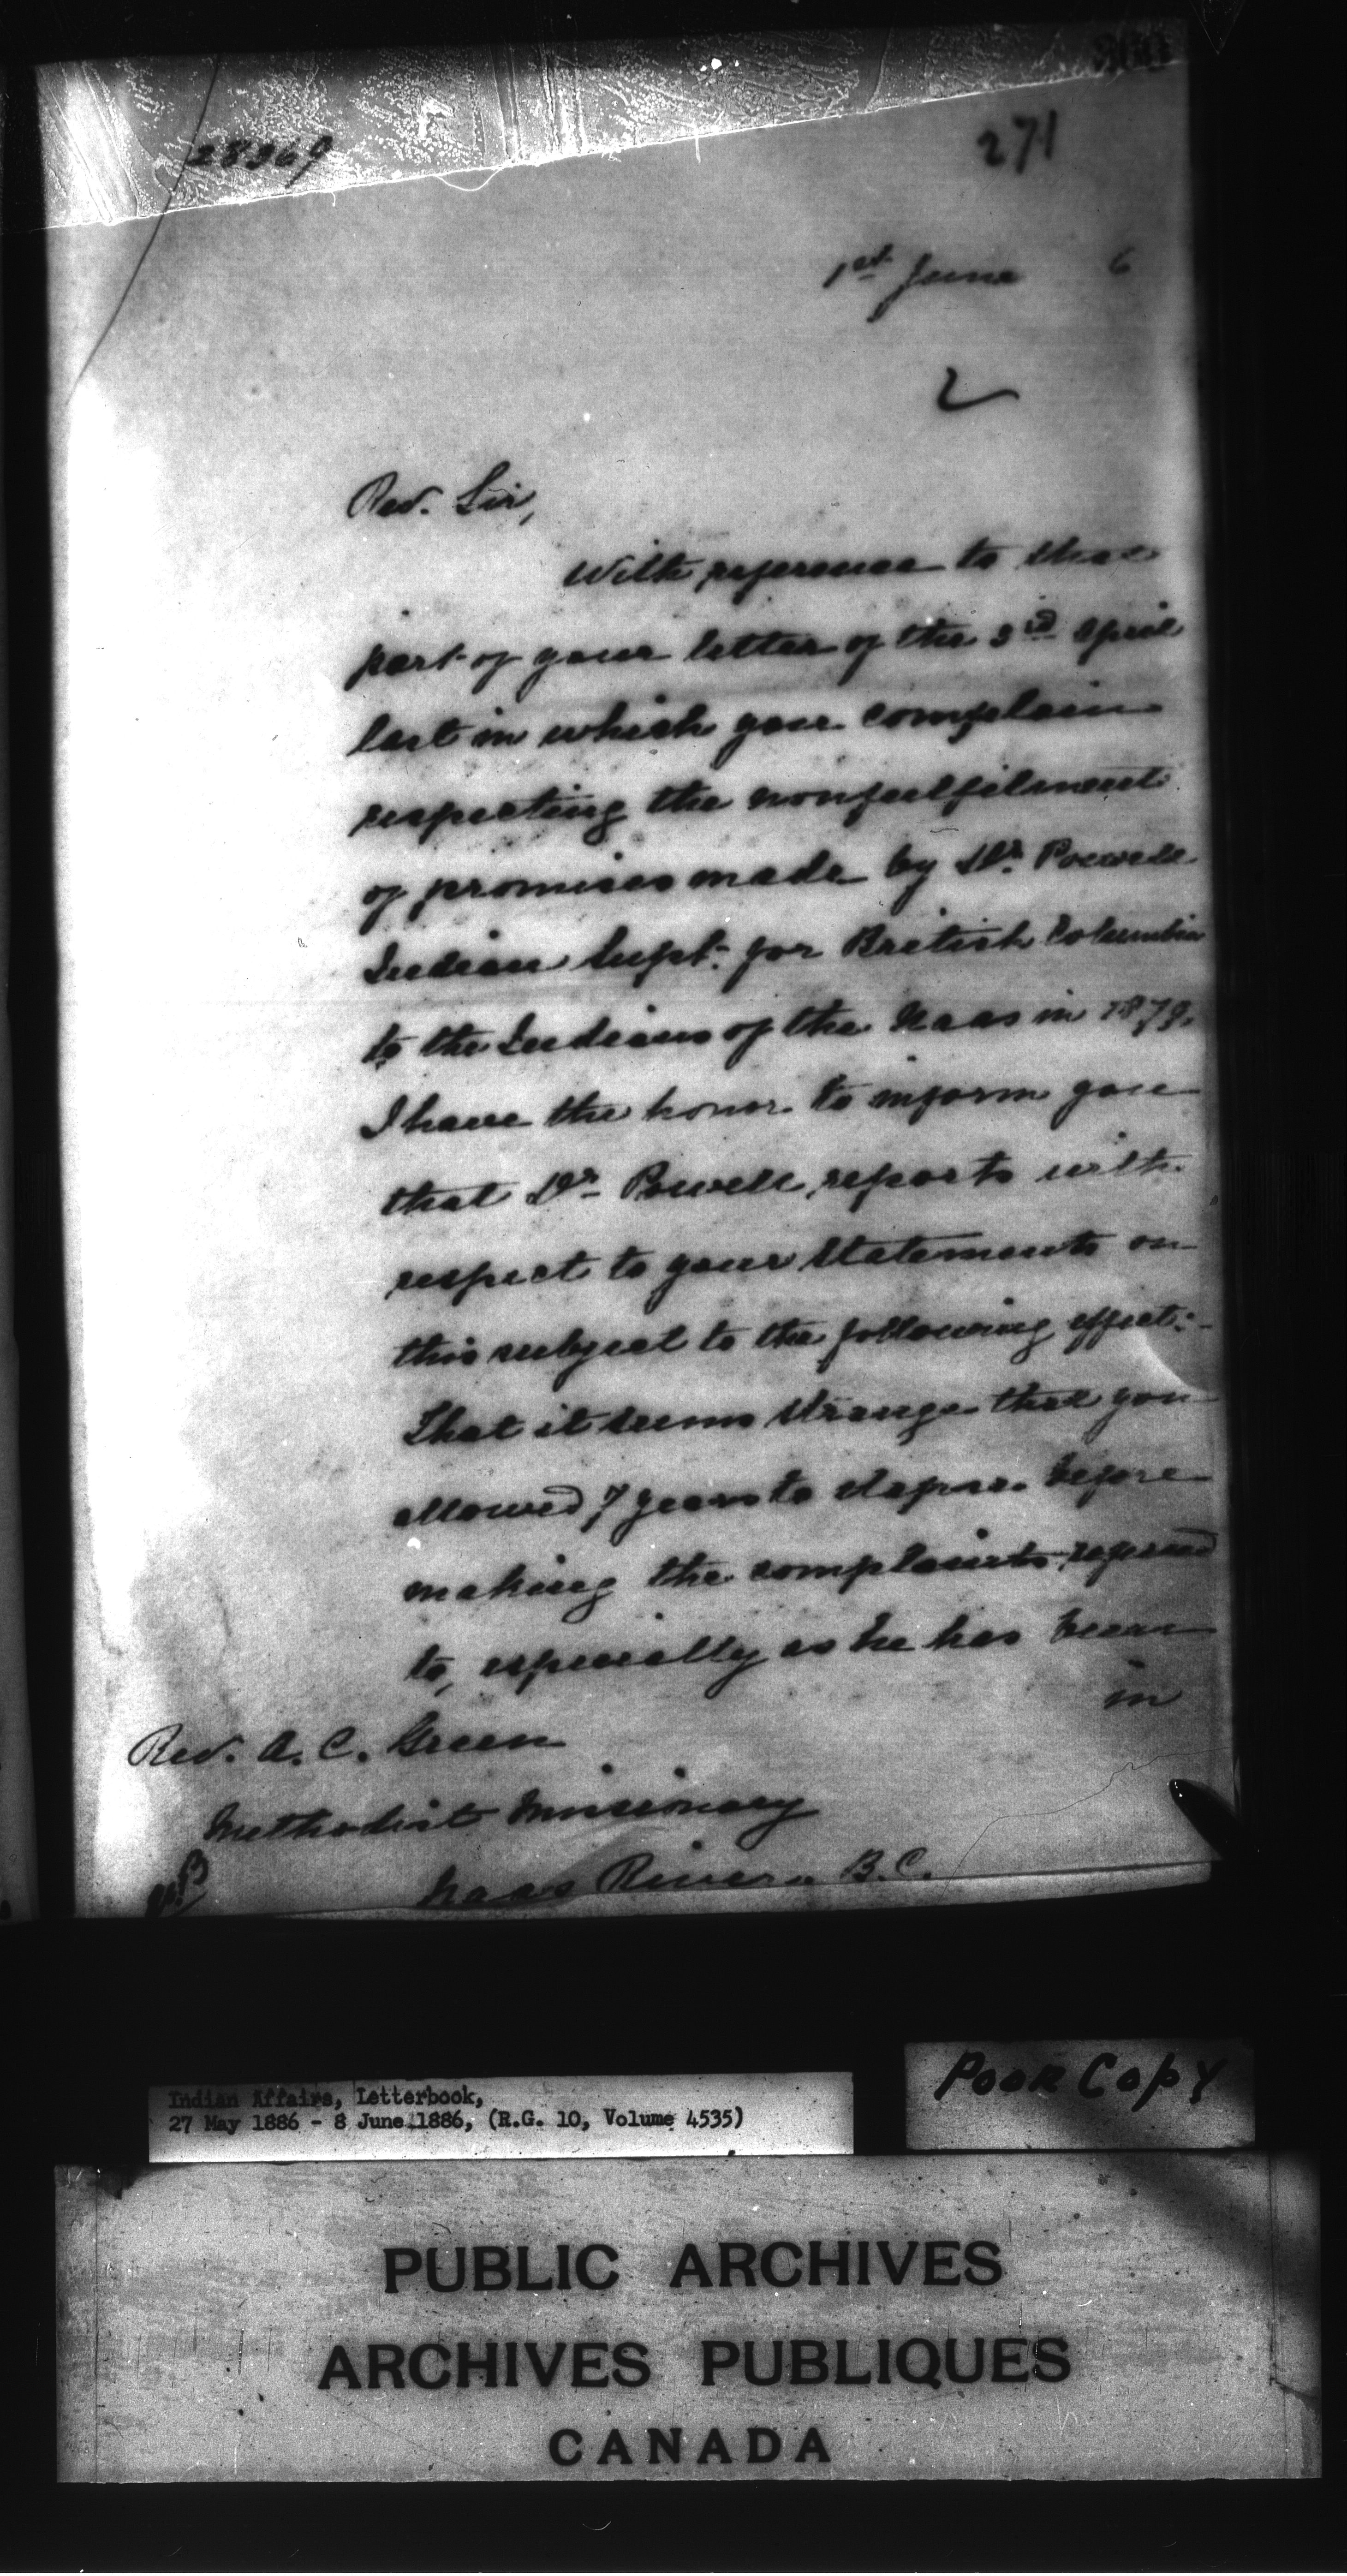 28369
271
1st June 6
Rev. Sir,
With reference to that
part of your letter of the 3rd April
last in which you complain
respecting the nonfulfilment
of promises made by Dr. Powell
Indian Supt. for British Columbia
to the Indians of the Naas in 1879,
I have the honor to inform you
that Dr. Powell reports with
respect to your statements on
this subject to the following effect:-
That it seems strange that you
allowed 7 years to elapse before
making the complaints referred
to, especially as he has been
in
Rev. A. C. Green
Methodist Missionary
Naas River, B.C.
Indian Affairs, Letterbook,
27 May 1886 - 8 June 1886, (R.G. 10, Volume 4535)
Poor Copy
PUBLIC ARCHIVES
ARCHIVES PUBLIQUES
CANADA